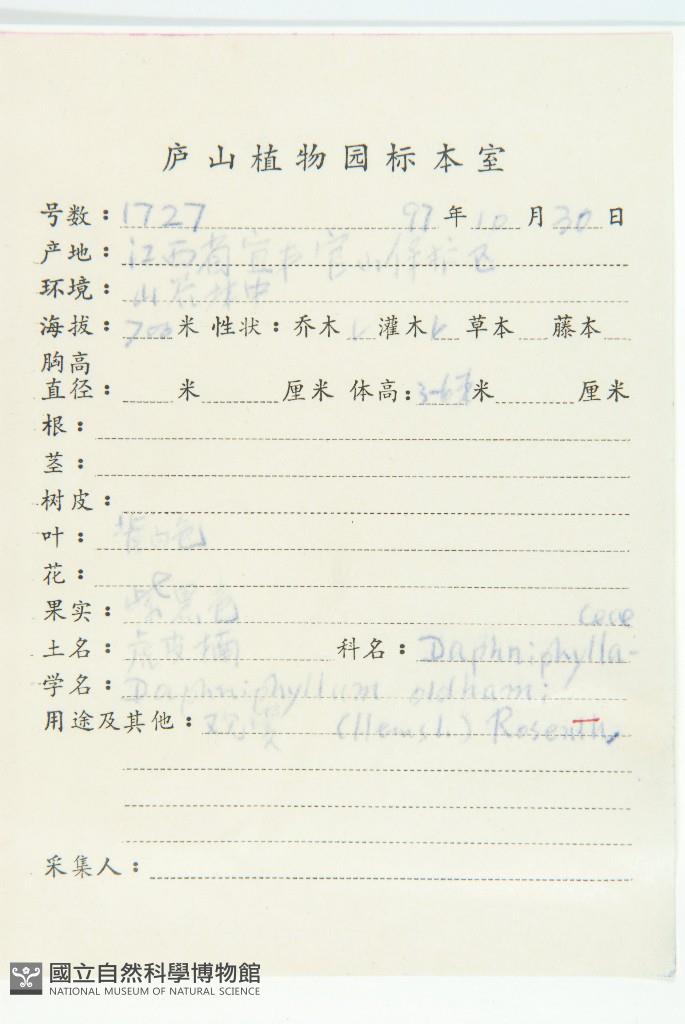 庐山植物园标本室
号数：1727 97年10月30日
产地：江西省宜丰官山保护区
环境：山谷林中
海拔：700米 性状：乔木 灌木 草本 藤本
胸高
直径： 米 厘米 体高：3-6米米 厘米
根：
茎：
树皮：
叶：背白色
花：
果实：紫黑色
ceae
土名：虎皮楠 科名：Daphniphylla-
学名：Daphniphyllum oldhami
用途及其他：观赏 (Hemsl.) Rosenth.
采集人：
國立自然科學博物館
NATIONAL MUSEUM OF NATURAL SCIENCE